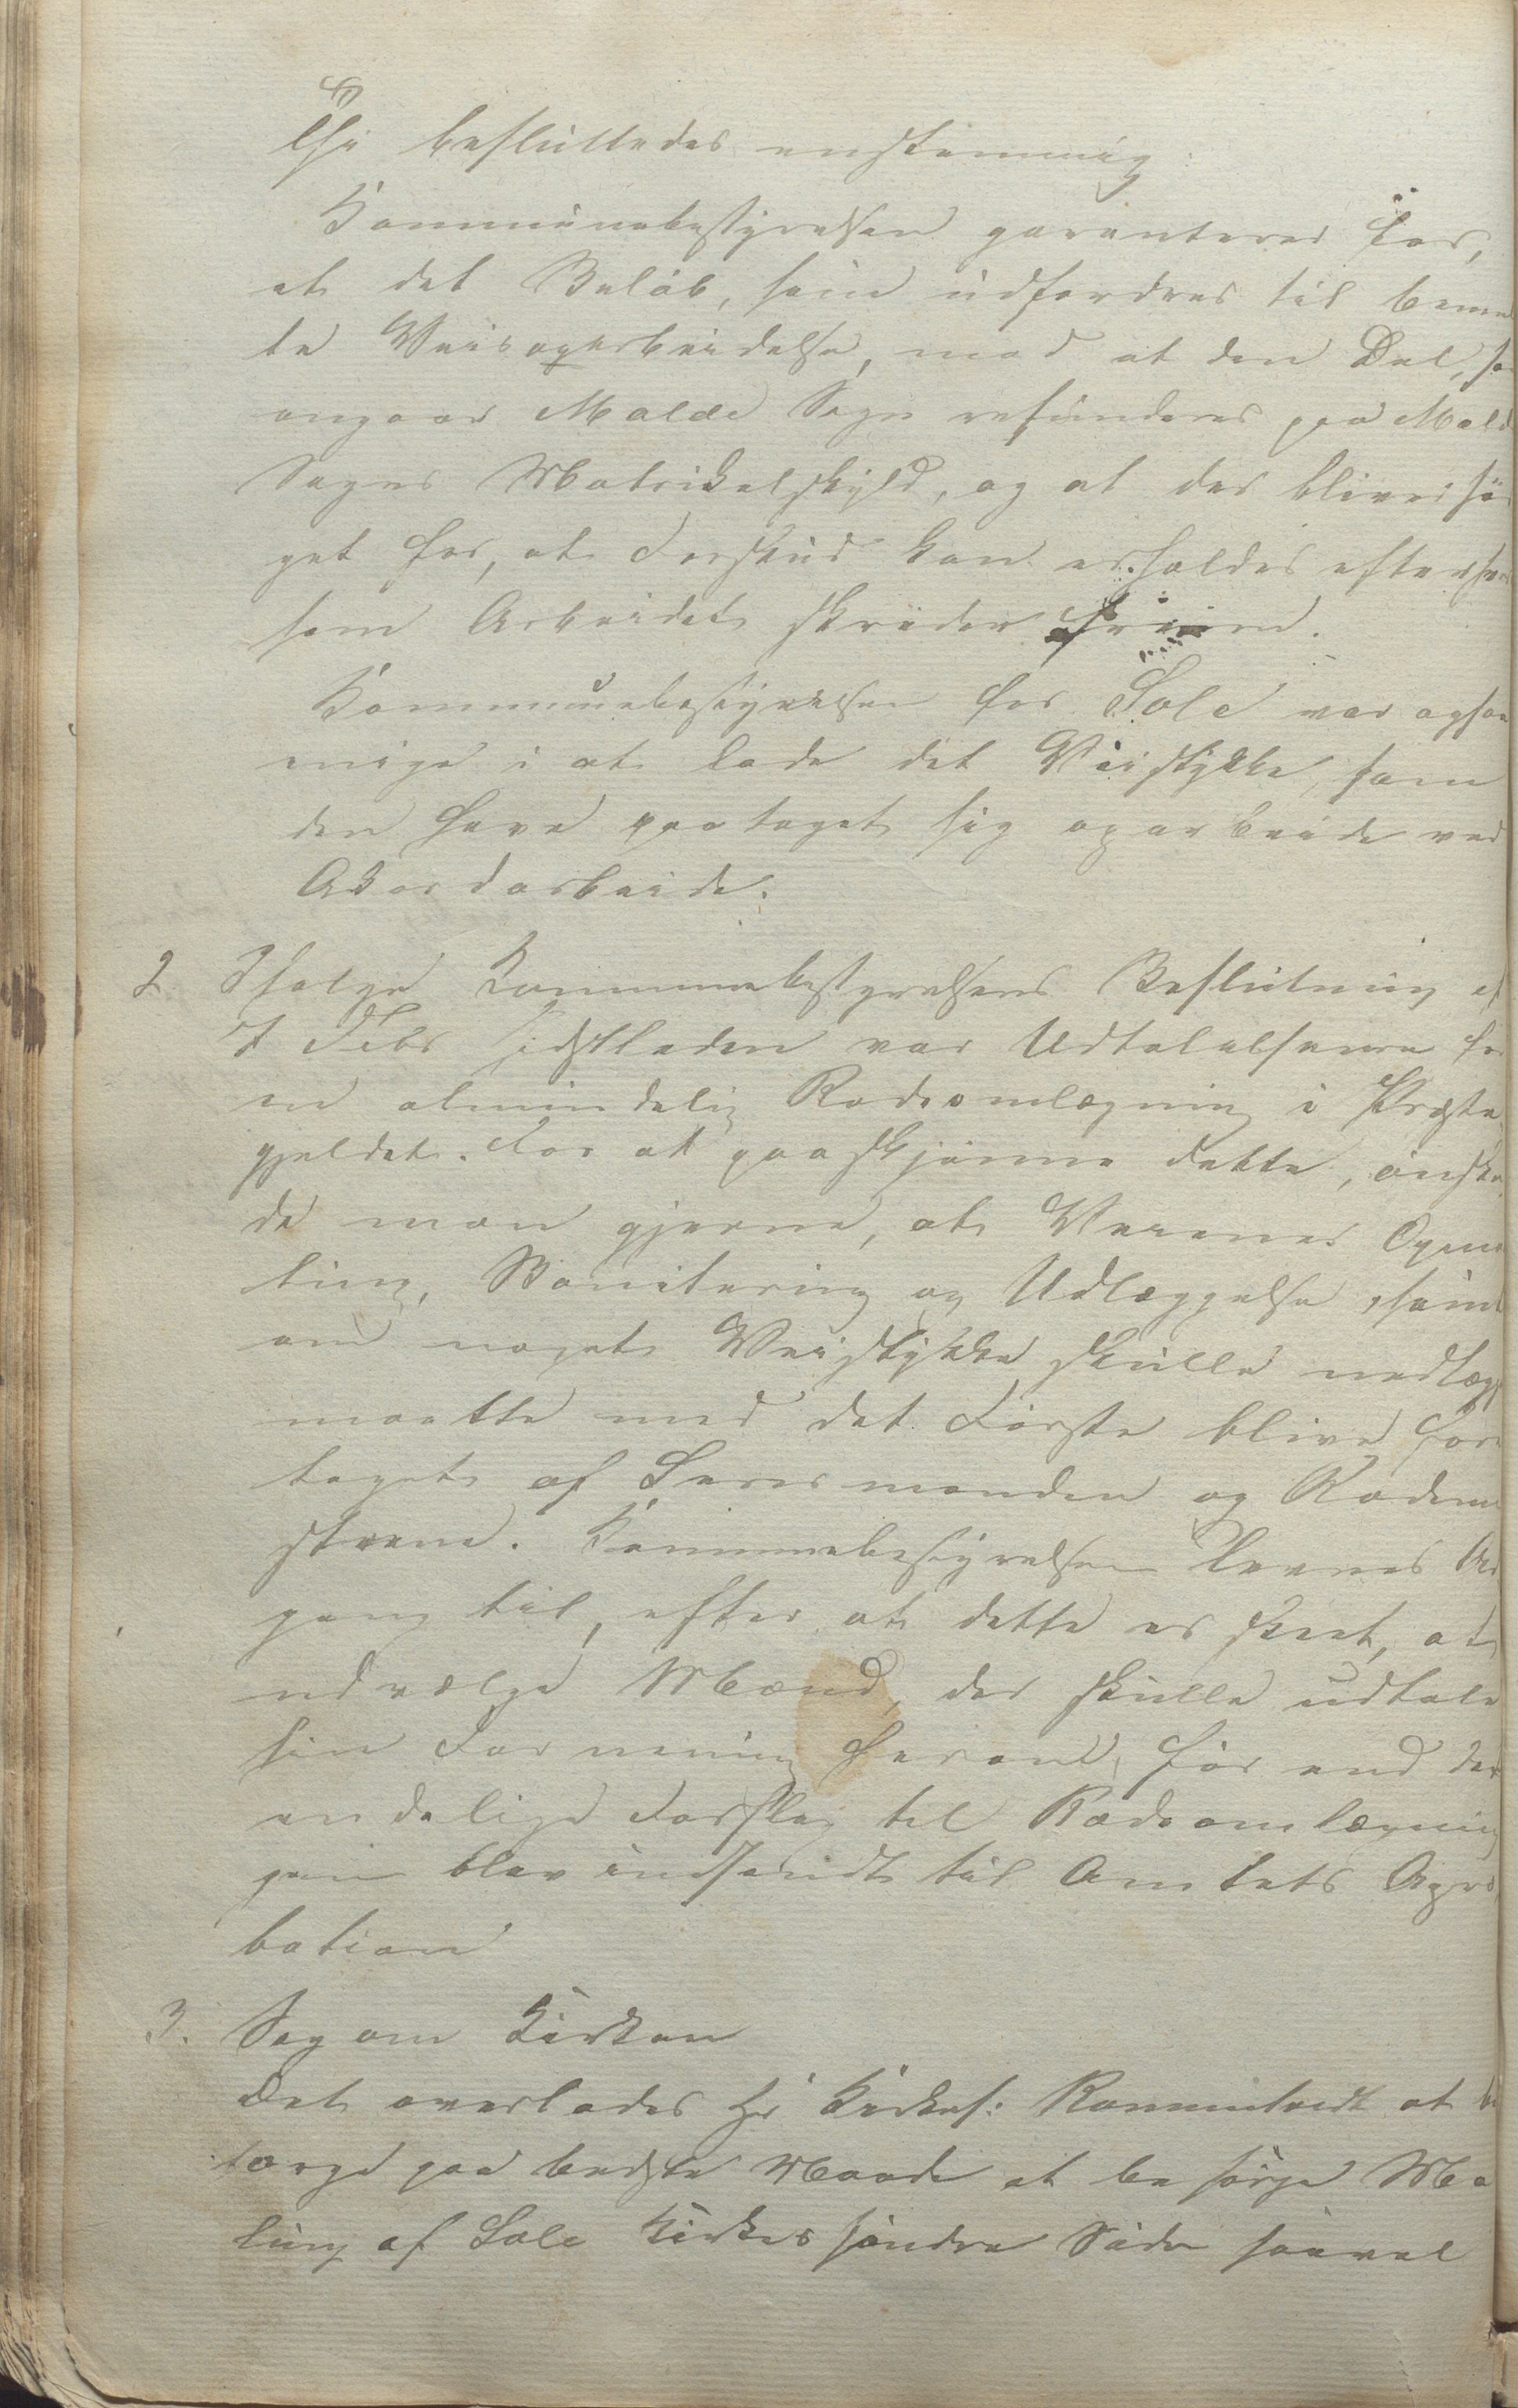 besluttedes enstemmig:
Kommunebestyrelsen garanterer for,
at det Beløb, som udfordres til bemel
te Veisoparbeidelse, mod at den Del, so
angaar Malde Sogn refunderes paa Malde
Sogns Matrikelskyld, og at der bliver sør
get for, at Forskud kan erholdes efterhven
som Arbeidet skrider frem.
Kommunebestyrelsen for Sole var ogsaa
enige i at lade det Veistykke, som
den have paataget sig oparbeide ved
Akordarbeide.
2 Ifølge Kommunebestyrelsens Beslutning af
7 Febr sidstleden var Udtalelserne for
en almindelig Rodeomlægning i Præste
gjeldet. For at paaskjønne dette, ønske
de man gjerne, at Veienes Opmaa
ling, Bonitering og Udlæggelse, samt
om noget Veistykke skulle nedlægges
maatte med det Første blive fore
taget af Lensmanden og Rodeme
strene. Kommunebestyrelsen levnes Ad
gang til, efter at dette er skeet, at
udvælge Mænd, der skulle udtale
sin Formening herom, før end det
endelige Forslag til Rodeomlægnin
gen blev indsendt til Amtets Apro
bation
3. Sag om Kirken
Det overlades Hr Kirkes: Rommetvedt at be
sørge paa bedste Maade at besørge Ma
ling af Sole Kirkes søndre Side saavel